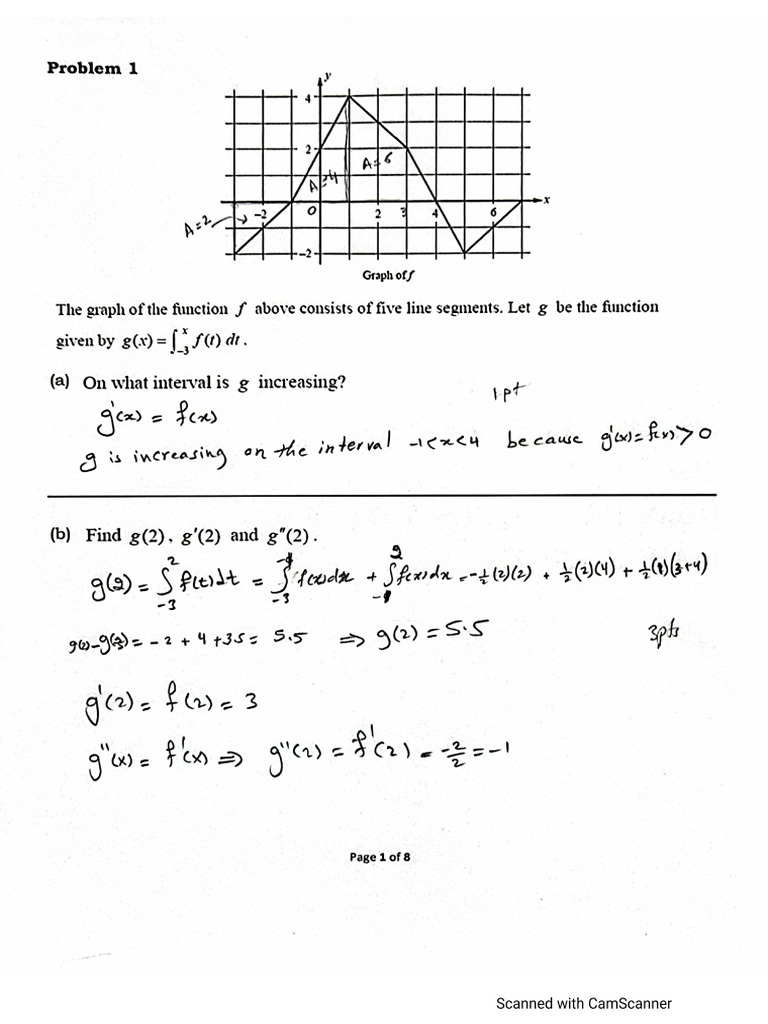 Problem 1
y
4
2
A=6
A=4
A=2
-2 O 2 3 4 6 x
-2
Graph of f
The graph of the function f above consists of five line segments. Let g be the function
given by g(x) = ∫_{-3}^{x} f(t) dt.
(a) On what interval is g increasing?
1 pt
g'(x) = f(x)
g is increasing on the interval -1<x<4 because g'(x)=f(x)>0
(b) Find g(2), g'(2) and g"(2).
g(2) = ∫_{-3}^{2} f(t)dt = ∫_{-3}^{-1} f(x)dx + ∫_{-1}^{2} f(x)dx = -½(2)(2) + ½(2)(4) + ½(1)(3+4)
g(2)-g(-3) = -2 + 4 + 3.5 = 5.5 ⇒ g(2) = 5.5
3pts
g'(2) = f(2) = 3
g"(x) = f'(x) ⇒ g"(2) = f'(2) = -2/2 = -1
Page 1 of 8
Scanned with CamScanner